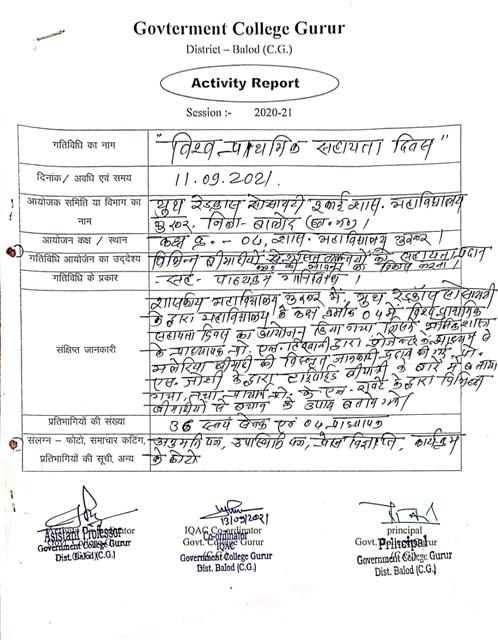 Govterment College Gurur
District – Balod (C.G.)
Activity Report
Session :- 2020-21
गतिविधि का नाम
"विश्व प्राथमिक सहायता दिवस"
दिनांक/ अवधि एवं समय
11.09.2021.
आयोजक समिति या विभाग का नाम
यूथ रेडक्रास सोसायटी इकाई शास. महाविद्यालय
गुरूर, जिला- बालोद (छ.ग.)
आयोजन कक्ष / स्थान
कक्ष क्र. - 04, शास. महाविद्यालय गुरूर।
गतिविधि आयोर्जन का उद्देश्य
विभिन्न बीमारीयों से ग्रसित व्यक्तियों को सहायता प्रदान
करने की भावना का विकास करना।
गतिविधि के प्रकार
- सह- पाठ्यक्रम गतिविधि।
संक्षिप्त जानकारी
शासकीय महाविद्यालय गुरूर में, यूथ रेडक्रॉस सोसायटी
के द्वारा महाविद्यालय के कक्ष क्रमांक 04 में विश्व प्राथमिक
सहायता दिवस का आयोजन किया गया जिसमें
के प्राध्यापक प्रो. एल. द्वारा प्रोजेक्टर के माध्यम से
मलेरिया बीमारी की विस्तृत जानकारी प्रदान की गई। प्रो.
एल. जोशी के द्वारा टाईफाईड बीमारी के बारे में बताया
गया, तथा प्राचार्य प्रो. के. एल. रावटे के द्वारा विभिन्न
बीमारीयों से बचाव के उपाय बताये गये।
प्रतिभागियों की संख्या
36 स्वयं सेवक एवं 04 प्राध्यापक
संलग्न – फोटो, समाचार कटिंग, प्रतिभागियों की सूची, अन्य
अनुमति पत्र, उपस्थिति पत्र, प्रेस विज्ञप्ति, कार्यक्रम
के फोटो
Asistant Professor
Government College Gurur
Dist. Balod (C.G.)
13/09/2021
IQAC Co-ordinator
Govt. College Gurur
Co-ordinator
IQAC
Government College Gurur
Dist. Balod (C.G.)
principal
Govt. College Gurur
Principal
Government College Gurur
Dist. Balod (C.G.)